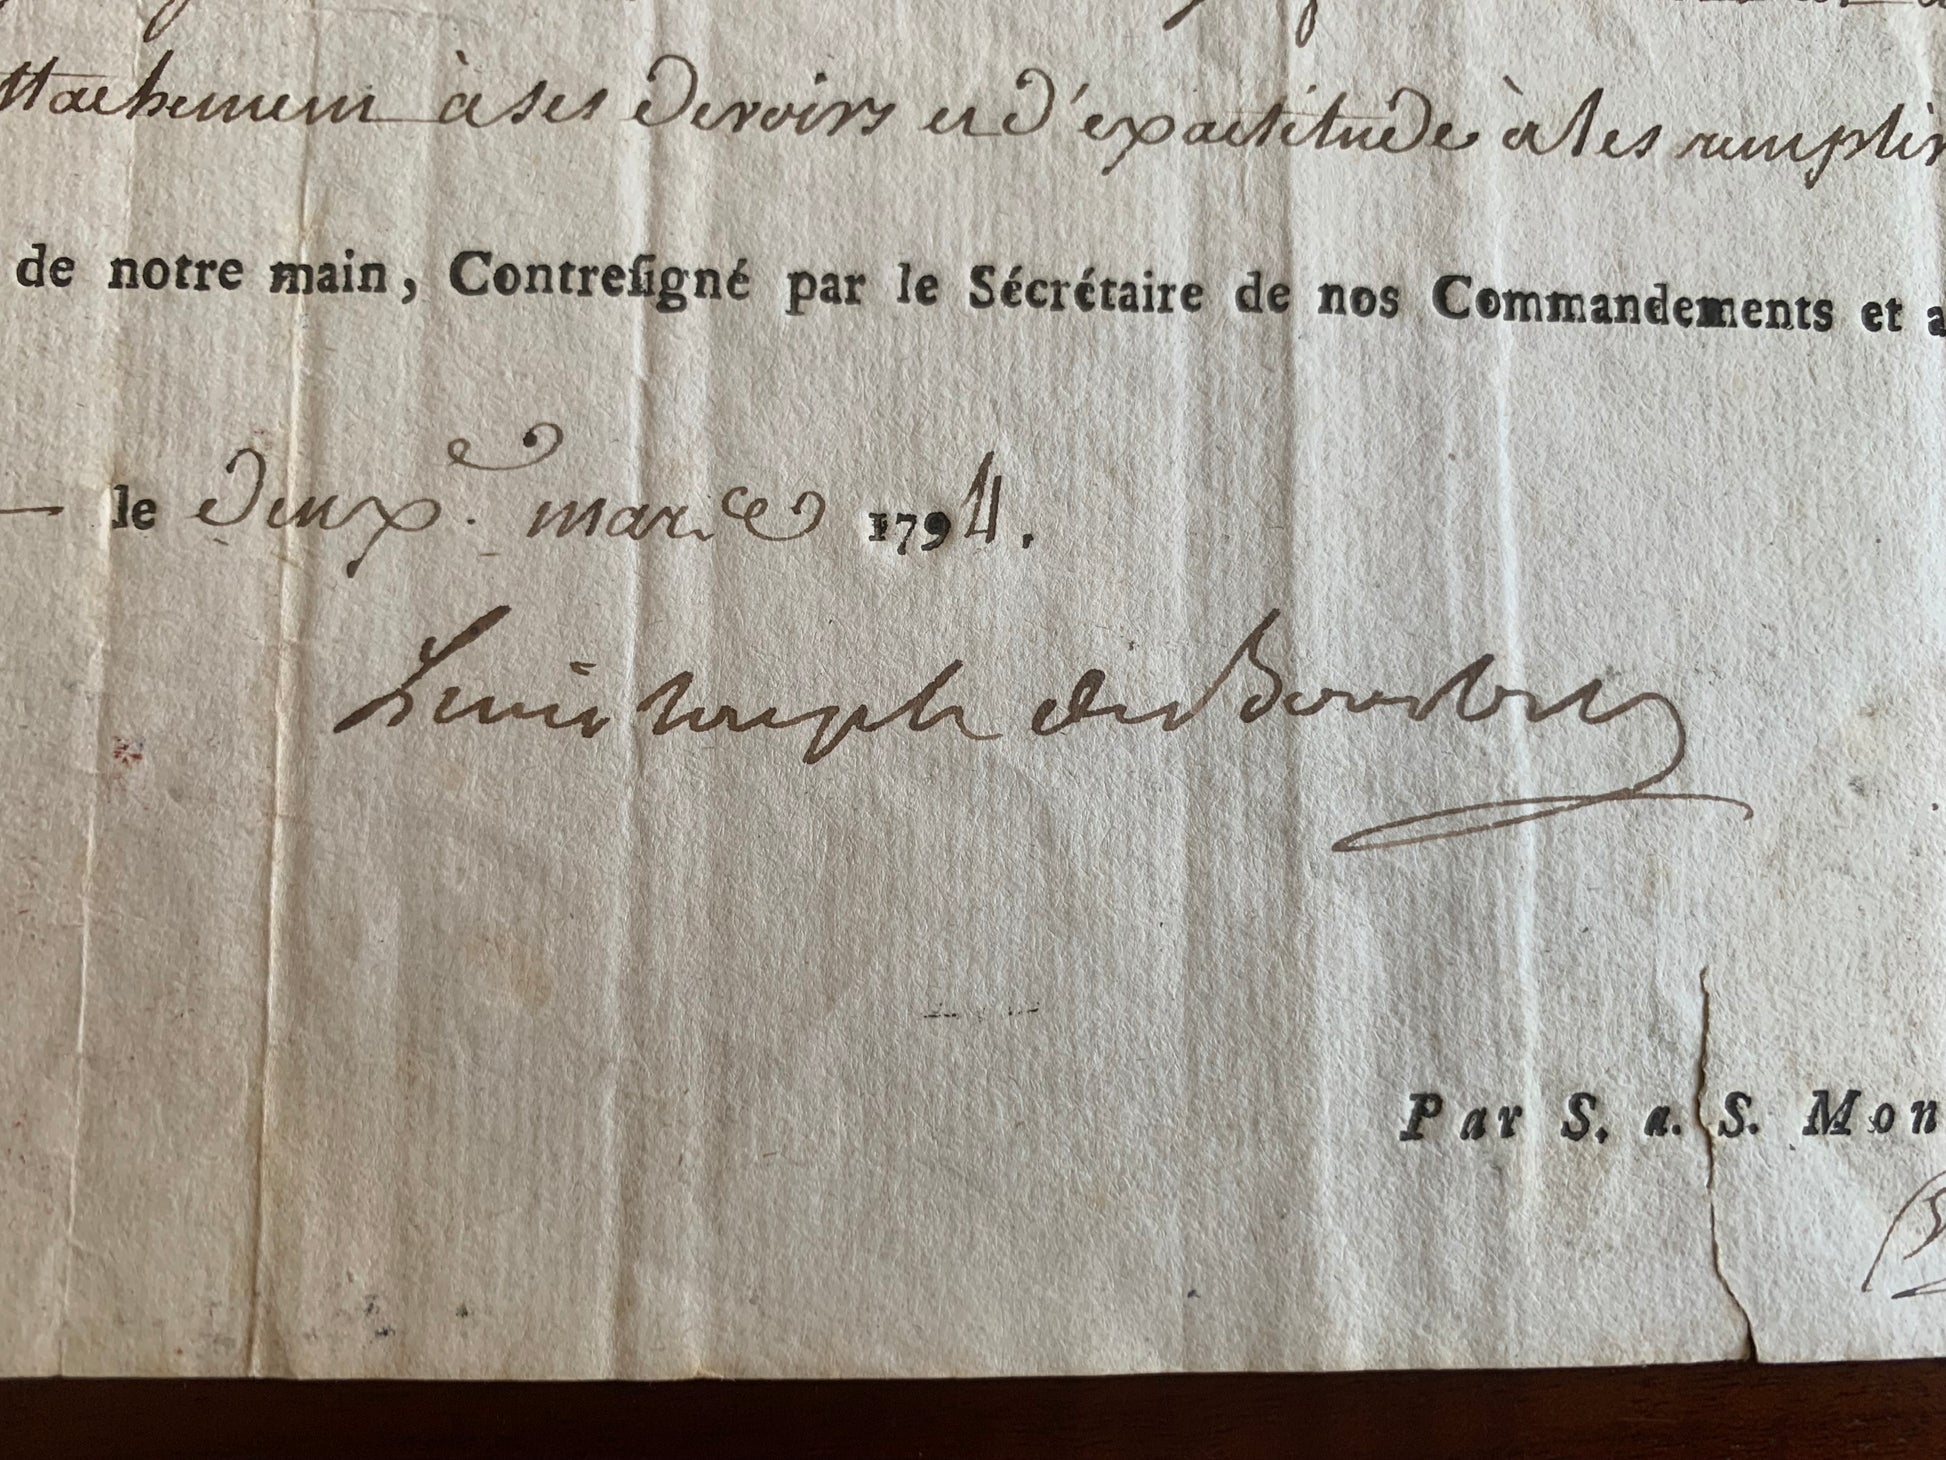 ttachement à ses devoirs et d'exactitude à les remplir
de notre main, Contreſigné par le Sécrétaire de nos Commandements et a
le deux. mars 1794.
Louis Joseph de Bourbon
Par S. a. S. Mon